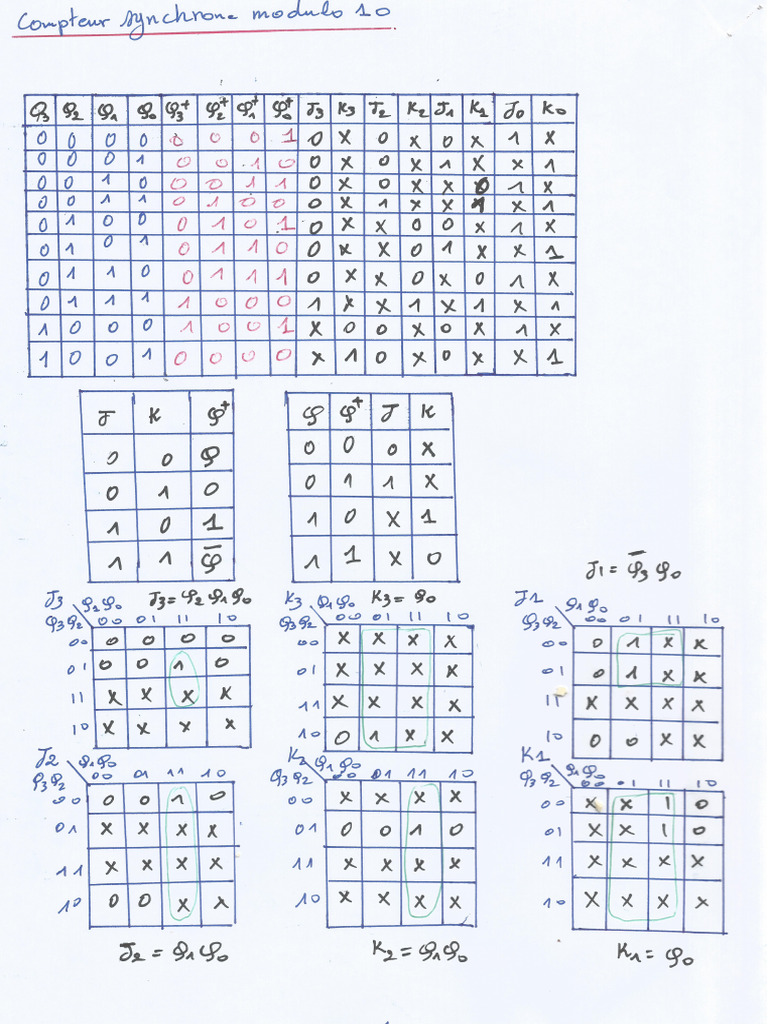 Compteur synchrone modulo 10
Q3 Q2 Q1 Q0 Q3+ Q2+ Q1+ Q0+ J3 K3 J2 K2 J1 K1 J0 K0
0 0 0 0 0 0 0 1 0 X 0 X 0 X 1 X
0 0 0 1 0 0 1 0 0 X 0 X 1 X X 1
0 0 1 0 0 0 1 1 0 X 0 X X 0 1 X
0 0 1 1 0 1 0 0 0 X 1 X X 1 X 1
0 1 0 0 0 1 0 1 0 X X 0 0 X 1 X
0 1 0 1 0 1 1 0 0 X X 0 1 X X 1
0 1 1 0 0 1 1 1 0 X X 0 X 0 1 X
0 1 1 1 1 0 0 0 1 X X 1 X 1 X 1
1 0 0 0 1 0 0 1 X 0 0 X 0 X 1 X
1 0 0 1 0 0 0 0 X 1 0 X 0 X X 1
J K Q+
0 0 Q
0 1 0
1 0 1
1 1 Q̅
Q Q+ J K
0 0 0 X
0 1 1 X
1 0 X 1
1 1 X 0
J3 J3 = Q2 Q1 Q0
Q1Q0
Q3Q2 00 01 11 10
00 0 0 0 0
01 0 0 1 0
11 X X X X
10 X X X X
K3 K3 = Q0
Q1Q0
Q3Q2 00 01 11 10
00 X X X X
01 X X X X
11 X X X X
10 0 1 X X
J1 = Q̅3 Q0
J1
Q1Q0
Q3Q2 00 01 11 10
00 0 1 X X
01 0 1 X X
11 X X X X
10 0 0 X X
J2
Q1Q0
Q3Q2 00 01 11 10
00 0 0 1 0
01 X X X X
11 X X X X
10 0 0 X X
J2 = Q1 Q0
K2
Q1Q0
Q3Q2 00 01 11 10
00 X X X X
01 0 0 1 0
11 X X X X
10 X X X X
K2 = Q1 Q0
K1
Q1Q0
Q3Q2 00 01 11 10
00 X X 1 0
01 X X 1 0
11 X X X X
10 X X X X
K1 = Q0